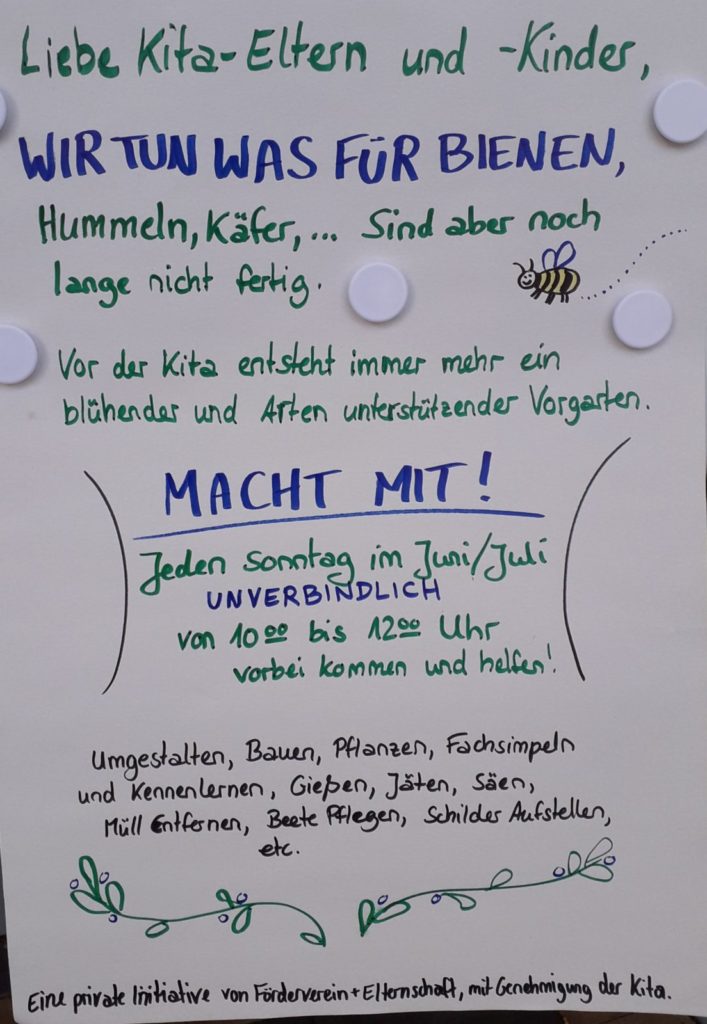 Liebe Kita-Eltern und -Kinder,
WIR TUN WAS FÜR BIENEN,
Hummeln, Käfer, ... Sind aber noch
lange nicht fertig.
Vor der Kita entsteht immer mehr ein
blühender und Arten unterstützender Vorgarten.
MACHT MIT!
Jeden Sonntag im Juni/Juli
UNVERBINDLICH
von 10⁰⁰ bis 12⁰⁰ Uhr
vorbei kommen und helfen!
Umgestalten, Bauen, Pflanzen, Fachsimpeln
und Kennenlernen, Gießen, Jäten, Säen,
Müll Entfernen, Beete Pflegen, Schilder Aufstellen,
etc.
Eine private Initiative von Förderverein+Elternschaft, mit Genehmigung der Kita.